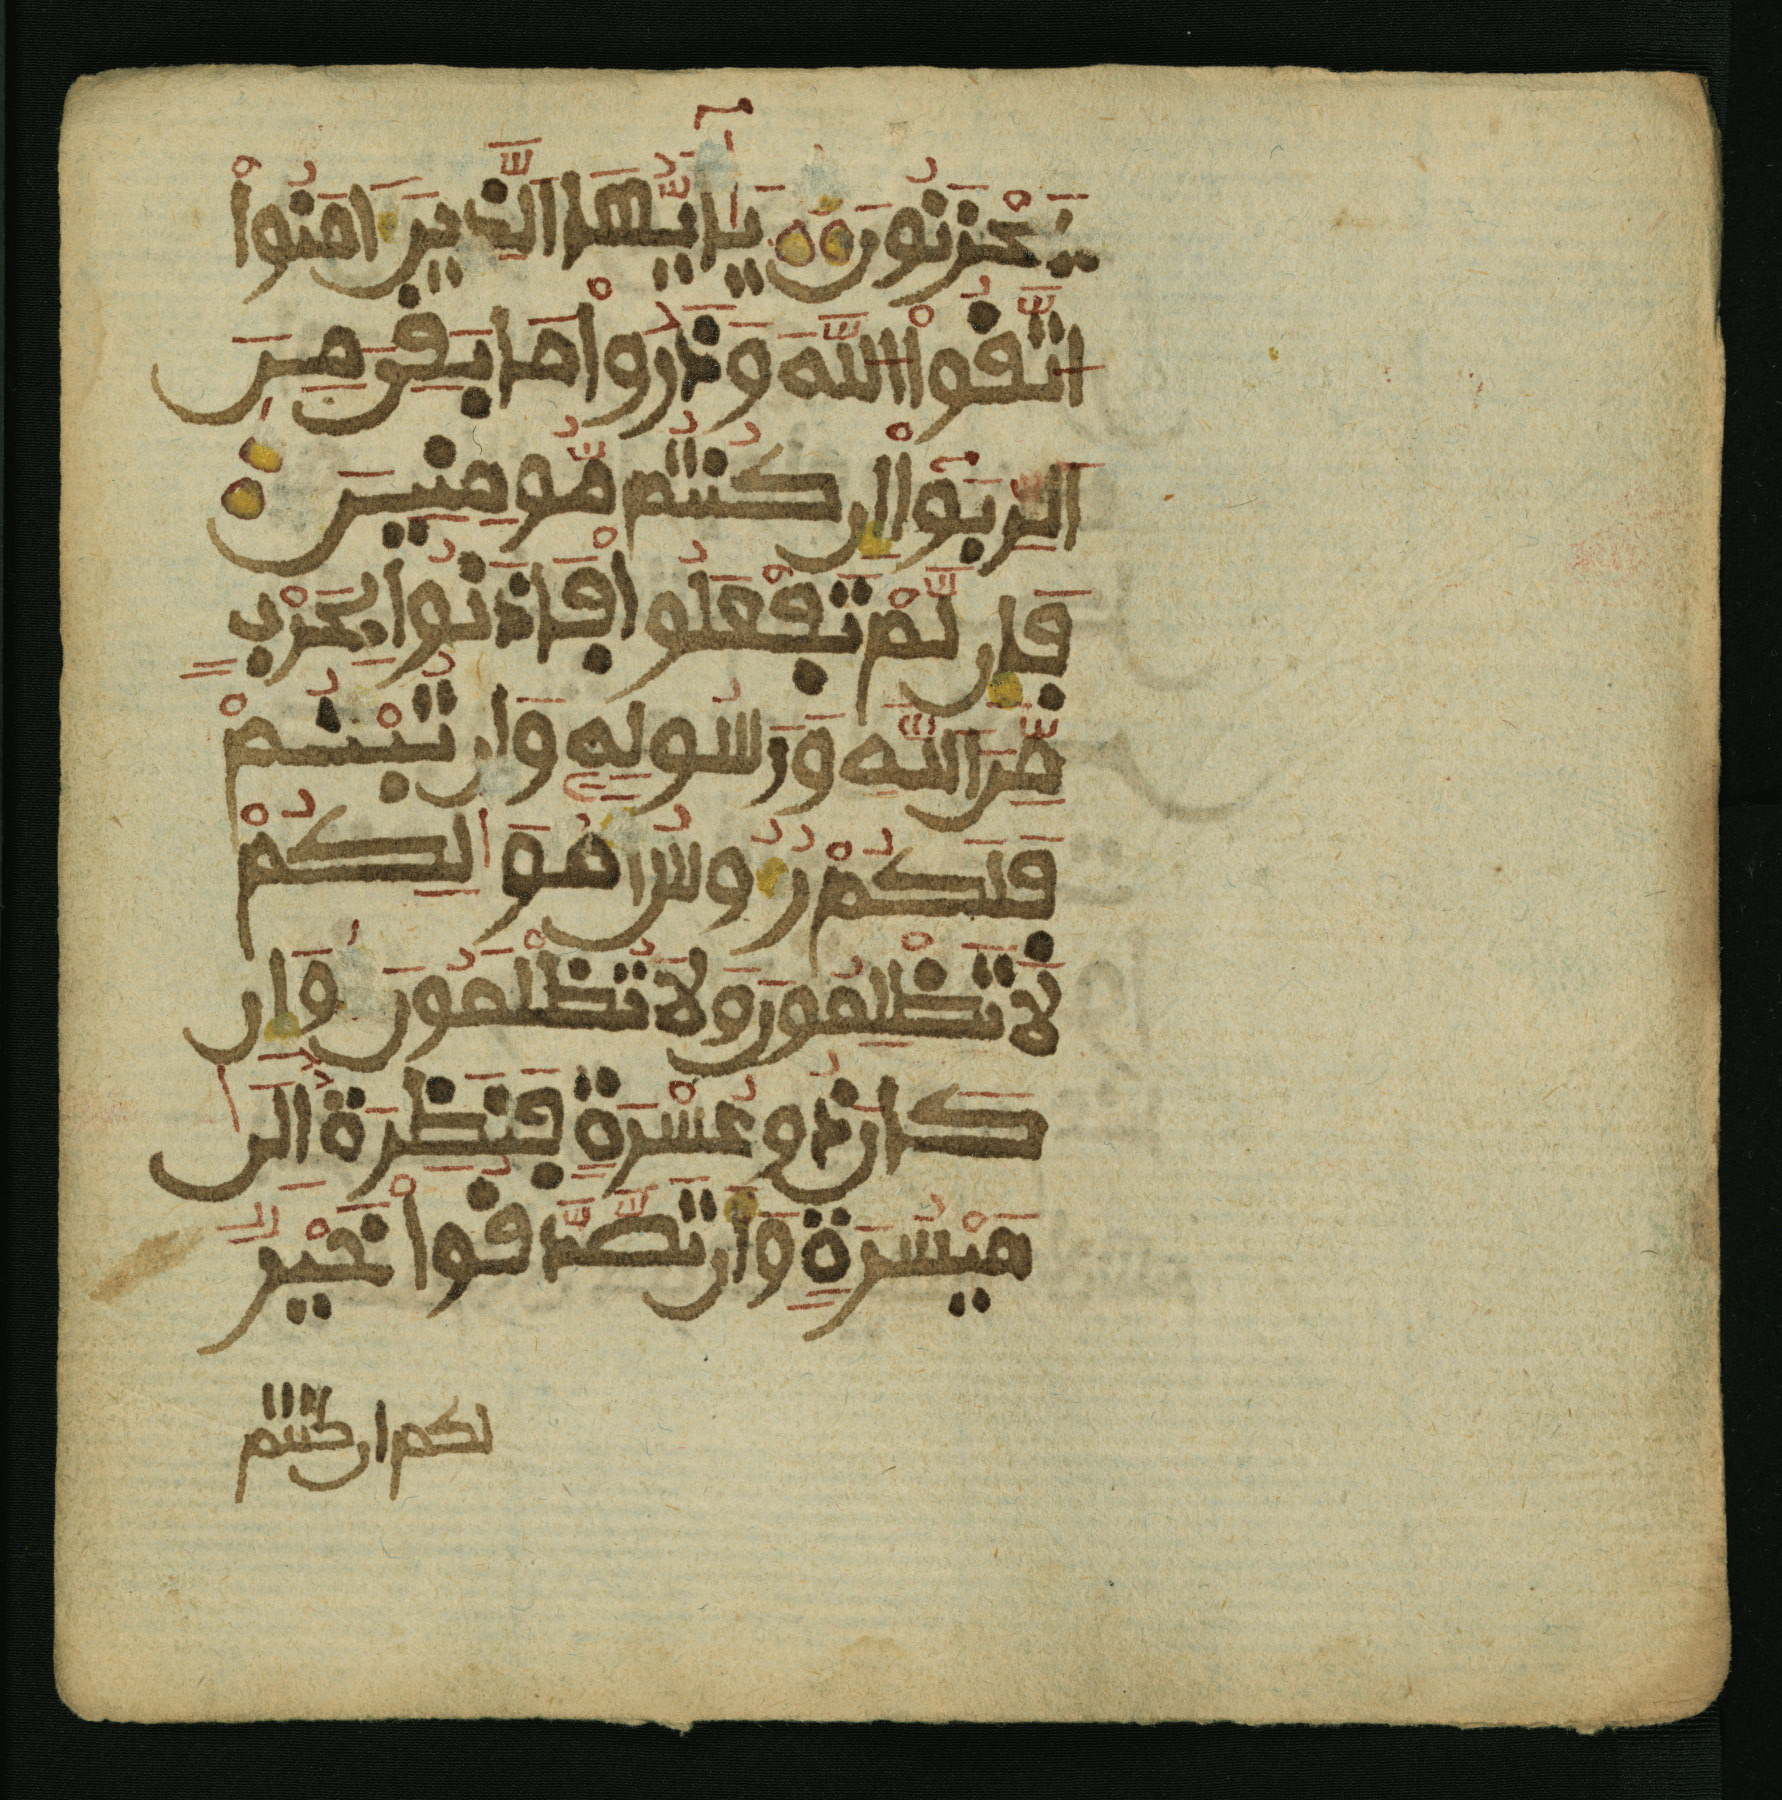 يَحْزَنُونَ يَٰٓأَيُّهَا الَّذِينَ ءَامَنُواْ
اتَّقُواْ اللَّهَ وَذَرُواْ مَا بَقِىَ مِنَ
الرِّبَوٰاْ إِن كُنتُم مُّومِنِينَ
فَإِن لَّمْ تَفْعَلُواْ فَاذَنُواْ بِحَرْبٍ
مِّنَ اللَّهِ وَرَسُولِهِ وَإِن تُبْتُمْ
فَلَكُمْ رُءُوسُ أَمْوَٰلِكُمْ
لَا تَظْلِمُونَ وَلَا تُظْلَمُونَ وَإِن
كَانَ ذُو عُسْرَةٍ فَنَظِرَةٌ إِلَىٰ
مَيْسَرَةٍ وَأَن تَصَّدَّقُواْ خَيْرٌ
لكم ان كنتم